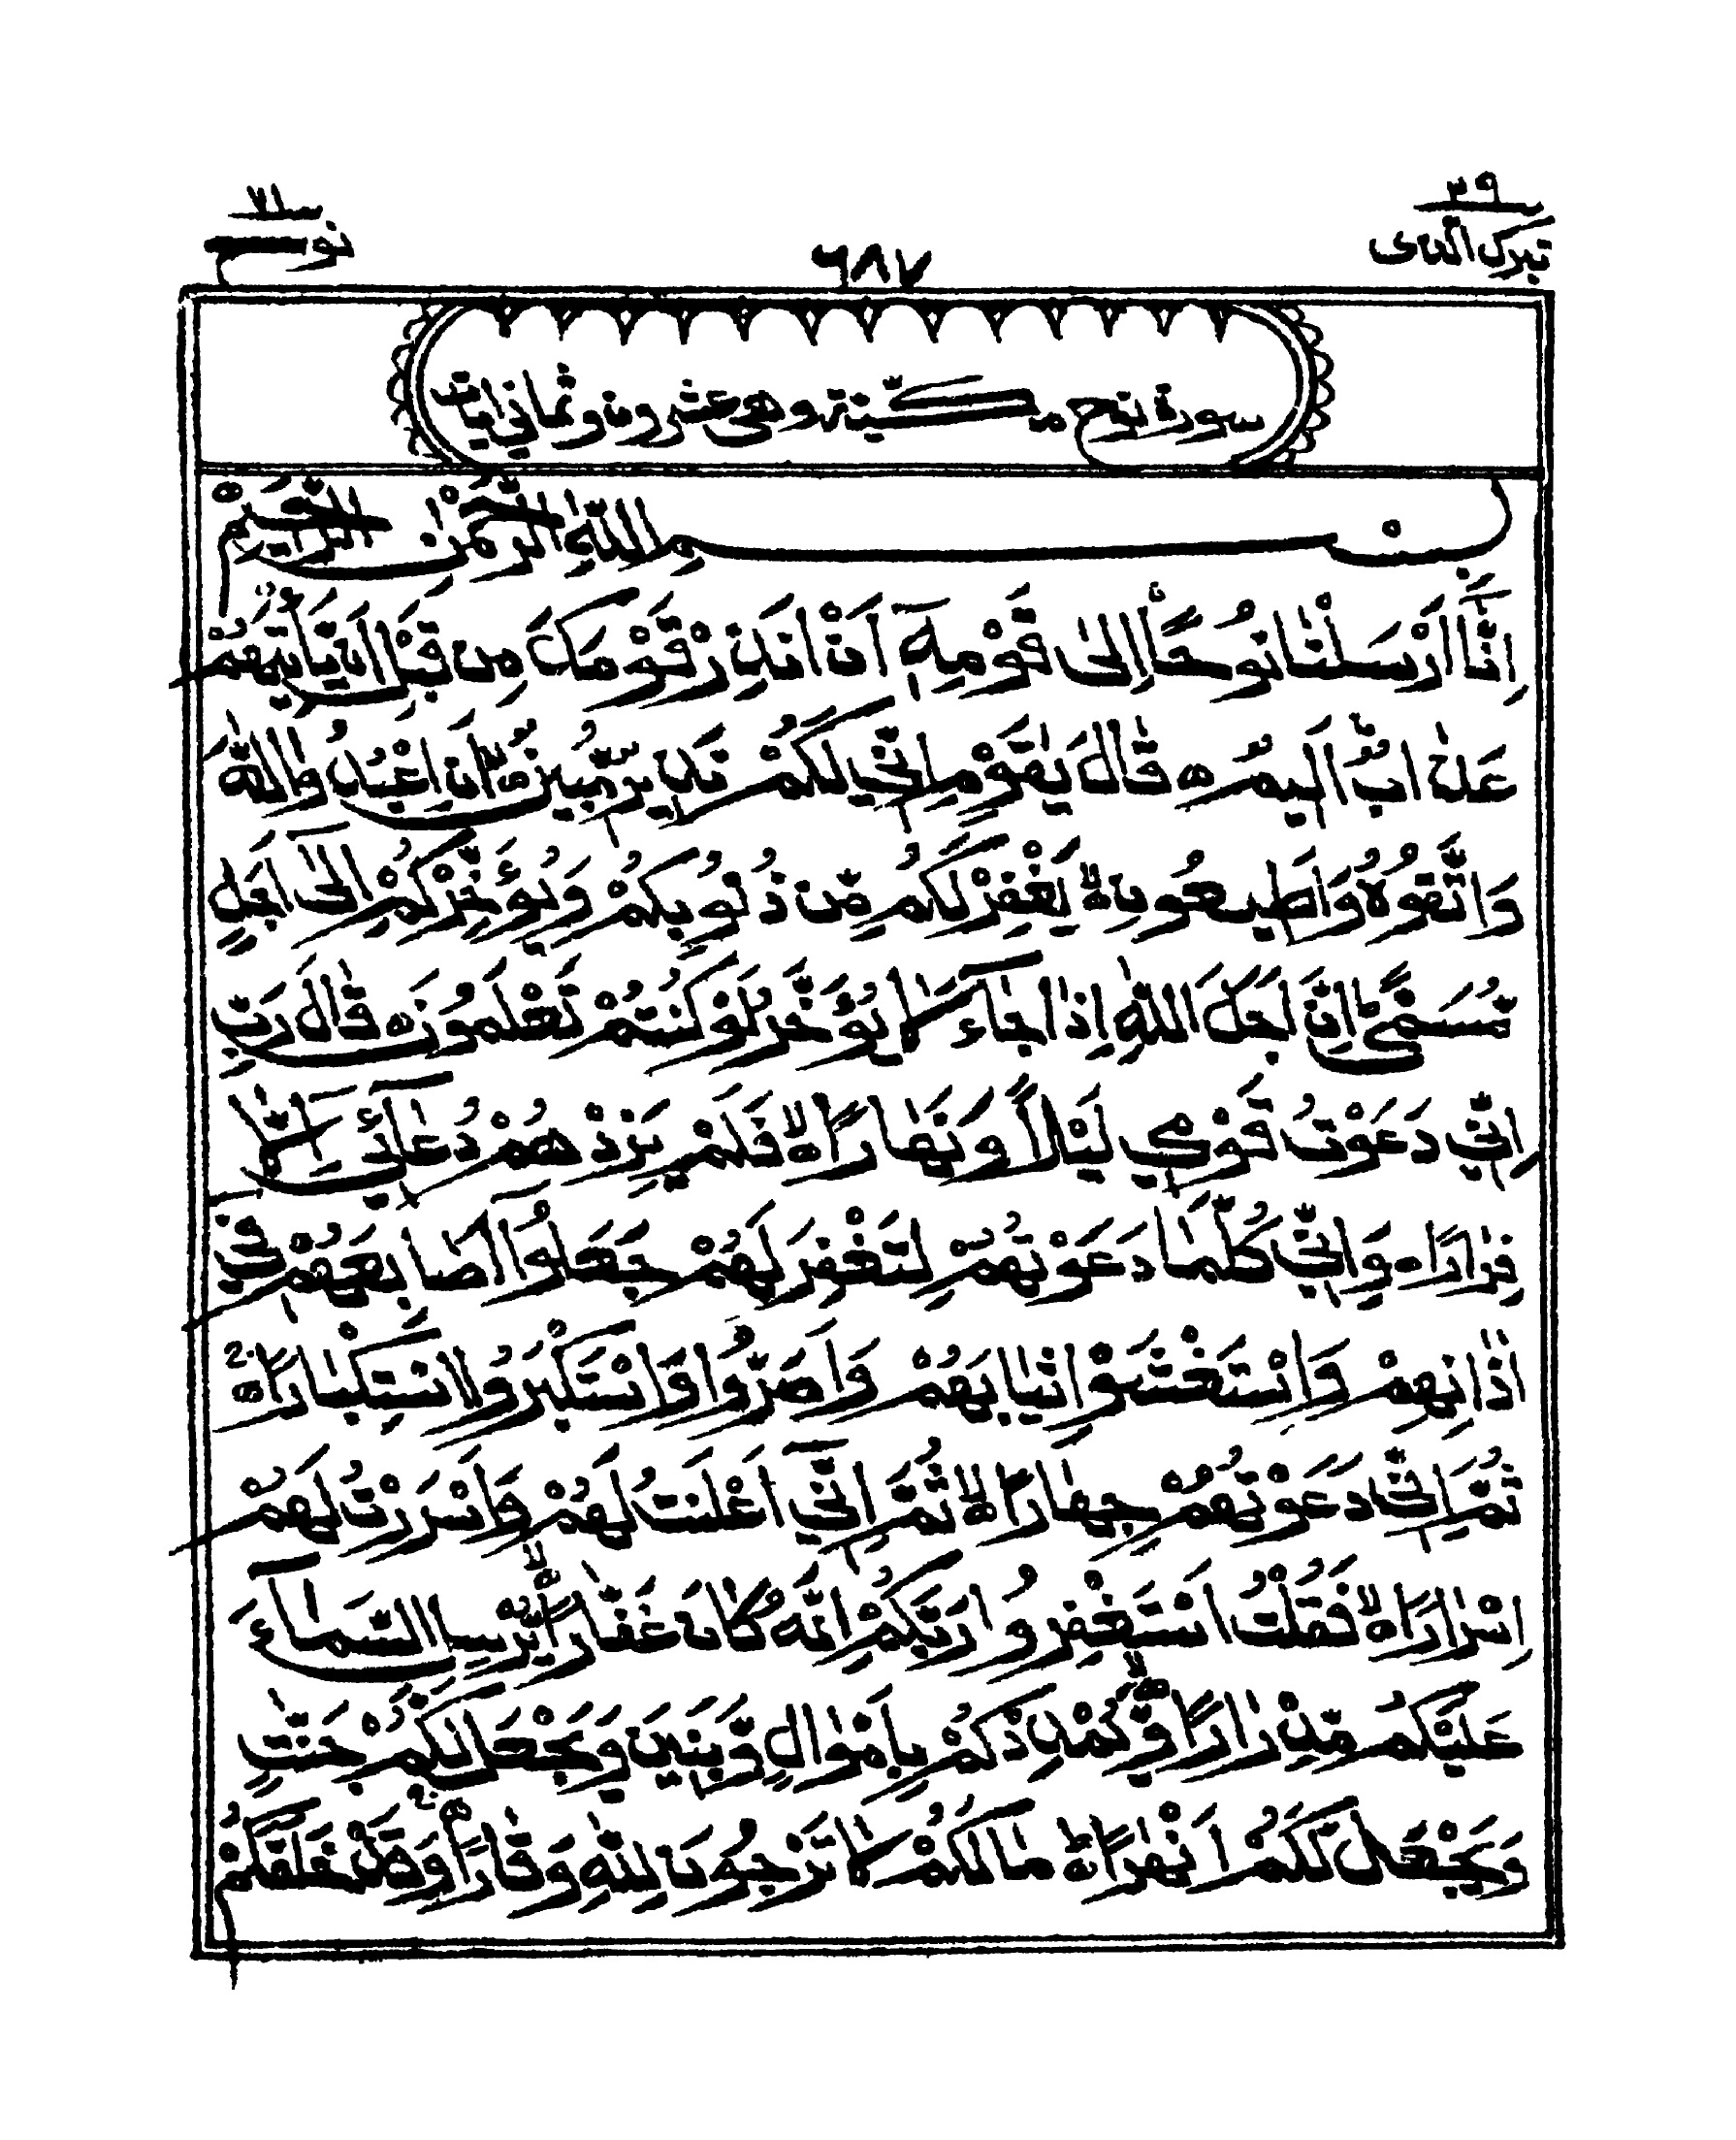 تبرك الذى ٢٩
٦٨٧
نوح ٧١
سورة نوح مكيّة وهى عشرون وثماني ايات
بِسْمِ اللّٰهِ الرَّحْمٰنِ الرَّحِيْمِ
اِنَّآ اَرْسَلْنَا نُوْحًا اِلٰى قَوْمِهٖٓ اَنْ اَنْذِرْ قَوْمَكَ مِنْ قَبْلِ اَنْ يَّاْتِيَهُمْ
عَذَابٌ اَلِيْمٌ ه قَالَ يٰقَوْمِ اِنِّيْ لَكُمْ نَذِيْرٌ مُّبِيْنٌ ه اَنِ اعْبُدُوا اللّٰهَ
وَاتَّقُوْهُ وَاَطِيْعُوْنِ ه يَغْفِرْ لَكُمْ مِّنْ ذُنُوْبِكُمْ وَيُؤَخِّرْكُمْ اِلٰٓى اَجَلٍ
مُّسَمًّى اِنَّ اَجَلَ اللّٰهِ اِذَا جَآءَ لَا يُؤَخَّرُ لَوْ كُنْتُمْ تَعْلَمُوْنَ ه قَالَ رَبِّ
اِنِّيْ دَعَوْتُ قَوْمِيْ لَيْلًا وَّنَهَارًا ه فَلَمْ يَزِدْهُمْ دُعَآءِيْٓ اِلَّا
فِرَارًا ه وَاِنِّيْ كُلَّمَا دَعَوْتُهُمْ لِتَغْفِرَ لَهُمْ جَعَلُوْٓا اَصَابِعَهُمْ فِيْٓ
اٰذَانِهِمْ وَاسْتَغْشَوْا ثِيَابَهُمْ وَاَصَرُّوْا وَاسْتَكْبَرُوا اسْتِكْبَارًا ه
ثُمَّ اِنِّيْ دَعَوْتُهُمْ جِهَارًا ه ثُمَّ اِنِّيْٓ اَعْلَنْتُ لَهُمْ وَاَسْرَرْتُ لَهُمْ
اِسْرَارًا ه فَقُلْتُ اسْتَغْفِرُوْا رَبَّكُمْ اِنَّهٗ كَانَ غَفَّارًا ه يُّرْسِلِ السَّمَآءَ
عَلَيْكُمْ مِّدْرَارًا ه وَّيُمْدِدْكُمْ بِاَمْوَالٍ وَّبَنِيْنَ وَيَجْعَلْ لَّكُمْ جَنّٰتٍ
وَّيَجْعَلْ لَّكُمْ اَنْهٰرًا ه مَا لَكُمْ لَا تَرْجُوْنَ لِلّٰهِ وَقَارًا ه وَقَدْ خَلَقَكُمْ